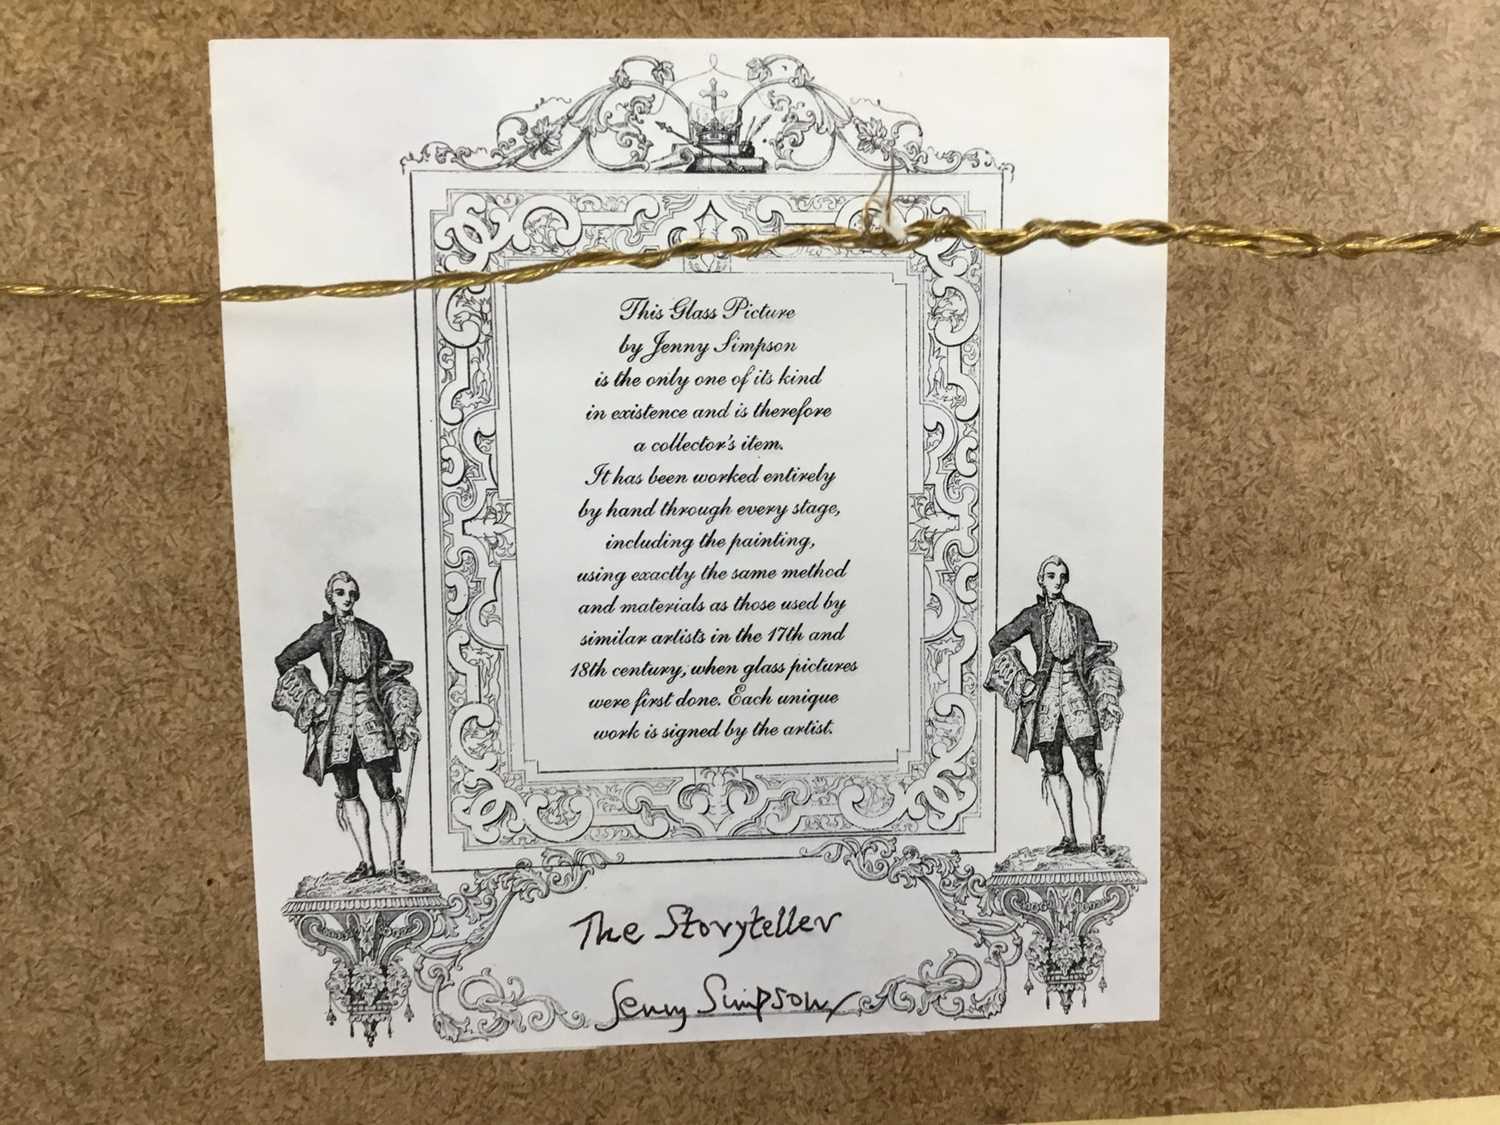 This Glass Picture
by Jenny Simpson
is the only one of its kind
in existence and is therefore
a collector's item.
It has been worked entirely
by hand through every stage,
including the painting,
using exactly the same method
and materials as those used by
similar artists in the 17th and
18th century, when glass pictures
were first done. Each unique
work is signed by the artist.
The Storyteller
Jenny Simpson